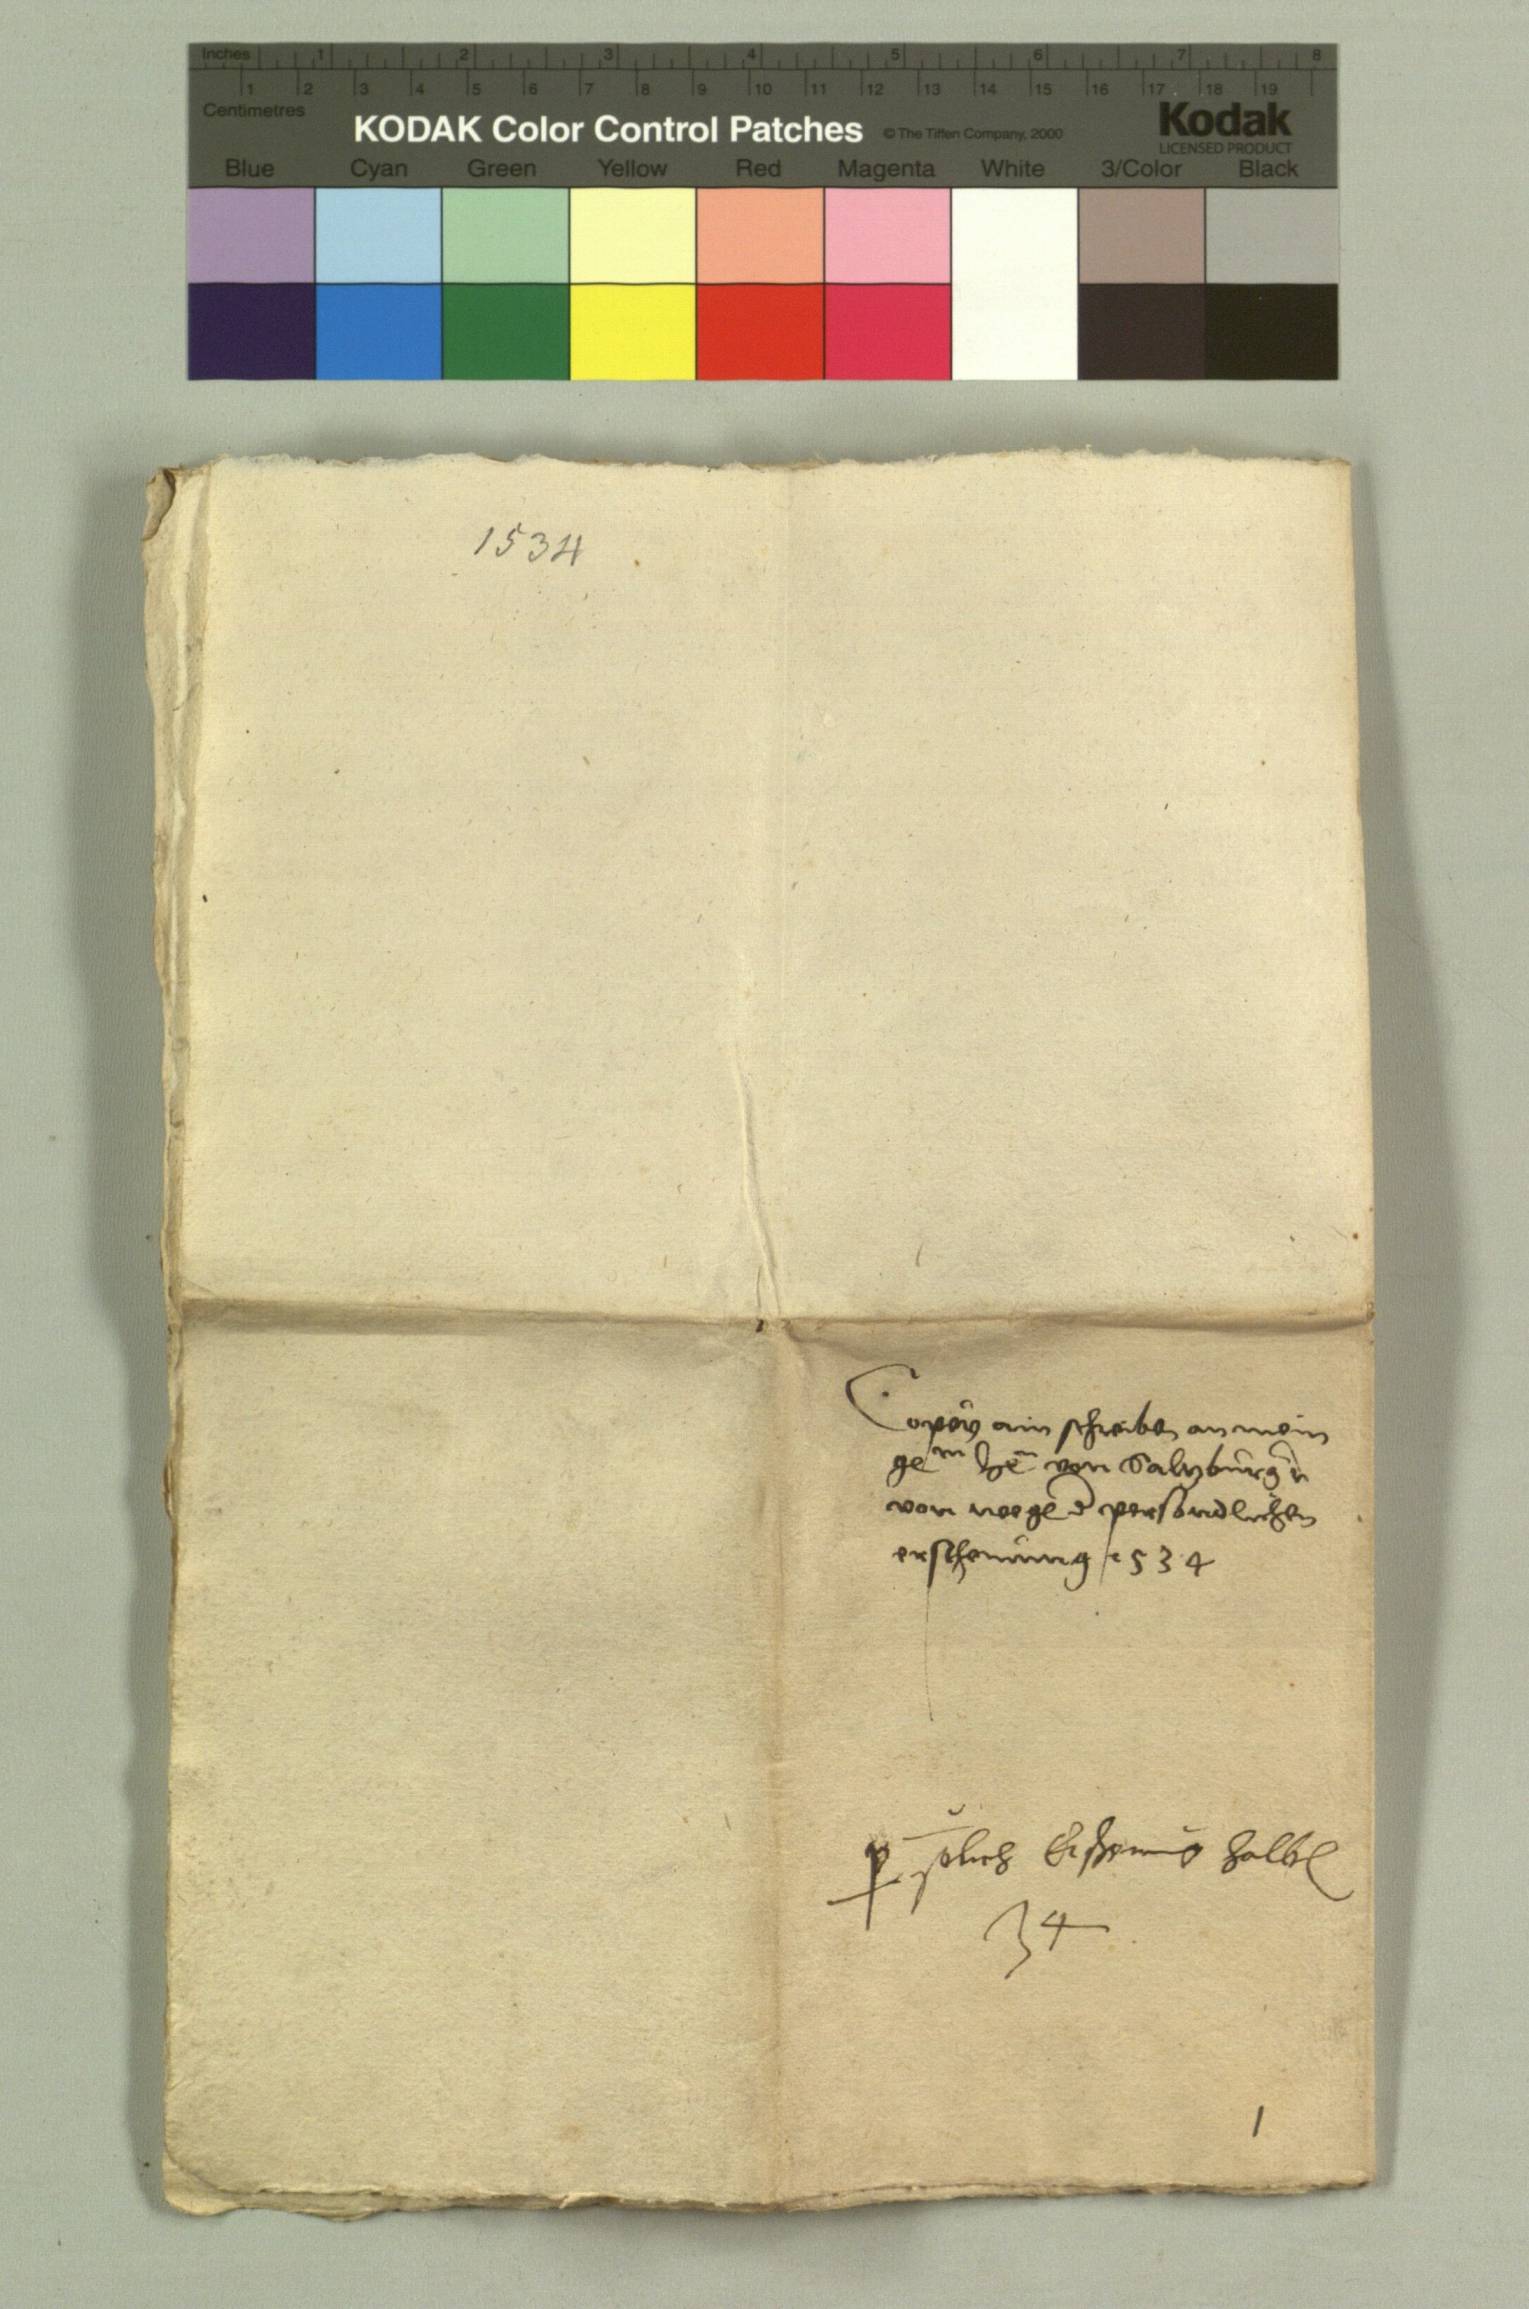 Inches 1 2 3 4 5 6 7 8
1 2 3 4 5 6 7 8 9 10 11 12 13 14 15 16 17 18 19
Centimetres
KODAK Color Control Patches © The Tiffen Company, 2000 Kodak
LICENSED PRODUCT
Blue Cyan Green Yellow Red Magenta White 3/Color Black
1534
Copey ain schreiben an mein
von Saltzburg
von wegen persondlichen
erscheinung 1534
halbe
34
1